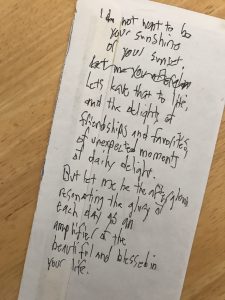 I do not want to be
your sunshine
or your sunset.
Let me
Lets leave that to life,
and the delights of
friendships and favorites
of unexpected moments
of daily delight.
But let me be the afterglow
resonating the glory of
each day as an
amplifier of the
beautiful and blessed in
your life.